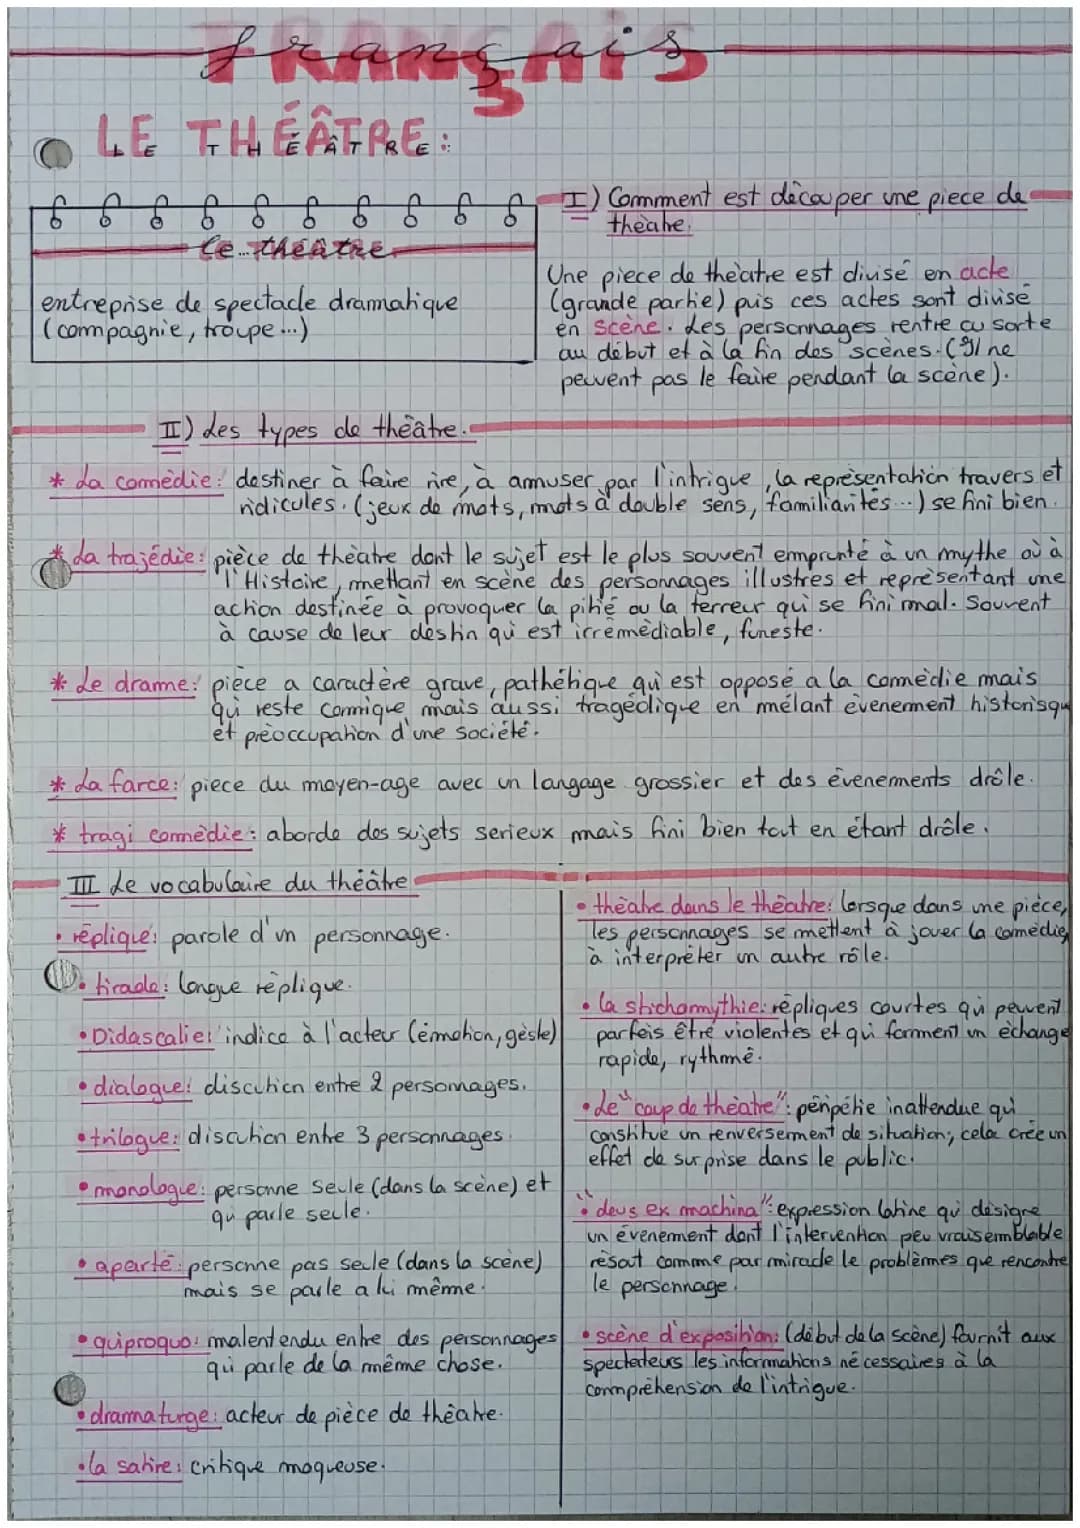 Français
LE THÉÂTRE:
Le théâtre
entreprise de spectacle dramatique
(compagnie, troupe...)
I) Comment est découper une piece de
théatre.
Une piece de thèatre est divisé en acte
(grande partie) puis ces actes sont divisé
en scène. Les personnages rentre ou sorte
au début et à la fin des scènes. (Il ne
peuvent pas le faire pendant la scène).
II) Les types de théâtre.
* La comédie: destiner à faire rire, à amuser par l'intrigue, la représentation travers et
ridicules. (jeux de mots, mots à double sens, familiarités...) se fini bien.
* La trajédie: pièce de théatre dont le sujet est le plus souvent emprunté à un mythe où à
l'Histoire, mettant en scène des personnages illustres et représentant une
action destinée à provoquer la pitié ou la terreur qui se fini mal. Souvent
à cause de leur destin qui est irrémédiable, funeste.
* Le drame: pièce a caractère grave, pathétique qui est opposé a la comédie mais
qui reste comique mais aussi tragédique en mélant évenement historisqu
et préoccupation d'une société.
* La farce: piece du moyen-age avec un langage grossier et des évenements drôle.
* tragi comédie: aborde des sujets serieux mais fini bien tout en étant drôle.
III Le vocabulaire du théâtre
• réplique: parole d'un personnage.
• tirade: longue réplique.
• Didascalie: indice à l'acteur (émotion, gèste)
• dialogue: discution entre 2 personnages.
• trilogue: discution entre 3 personnages.
• monologue: personne seule (dans la scène) et
qui parle seule.
• aparté: personne pas seule (dans la scène)
mais se parle a lui même.
• quiproquo: malentendu entre des personnages
qui parle de la même chose.
• dramaturge: acteur de pièce de théatre.
• la satire: critique moqueuse.
• théatre dans le théatre: lorsque dans une pièce,
les personnages se mettent à jouer la comédie,
à interpréter un autre rôle.
• la stichomythie: répliques courtes qui peuvent
parfois être violentes et qui forment un échange
rapide, rythmé.
• Le "coup de théatre": péripétie inattendue qui
constitue un renversement de situation, cela crée un
effet de surprise dans le public.
• "deus ex machina": expression latine qui désigne
un évenement dont l'intervention peu vraisemblable
résout comme par miracle le problèmes que rencontre
le personnage.
• scène d'exposition: (début de la scène) fournit aux
spectateurs les informations nécessaires à la
compréhension de l'intrigue.